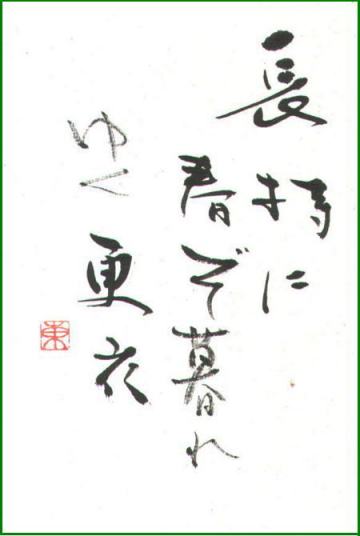 長持に
春ぞ暮れ
ゆく更衣
東